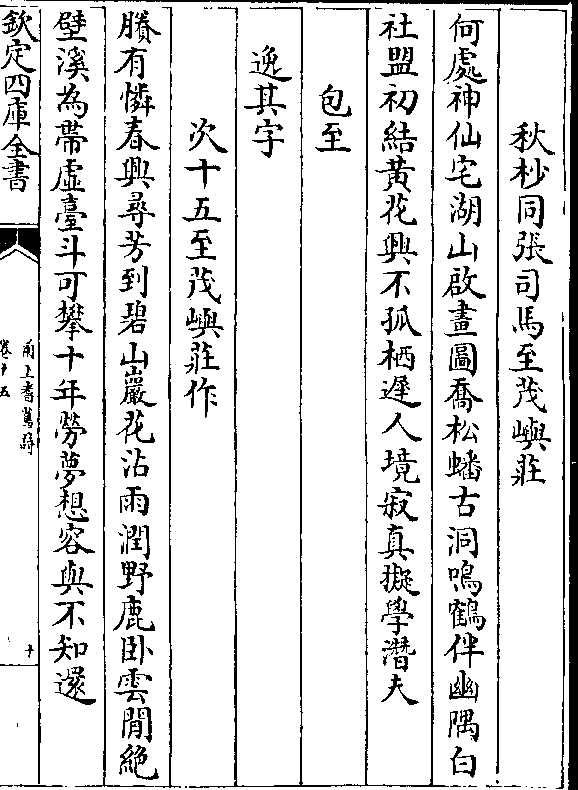 秋杪同張司馬至茂嶼莊
何處神仙宅湖山啟畫圖喬松蟠古洞鳴鶴伴幽隅白
社盟初結黃花興不孤栖遲人境寂真擬學潛夫
包至
逸其字
次十五至茂嶼莊作
賸有憐春興尋芳到碧山巖花沾雨潤野鹿卧雲閒絶
壁溪為帶虛臺斗可攀十年勞夢想容與不知還
欽定四庫全書
甬上耆舊詩
卷十五
十